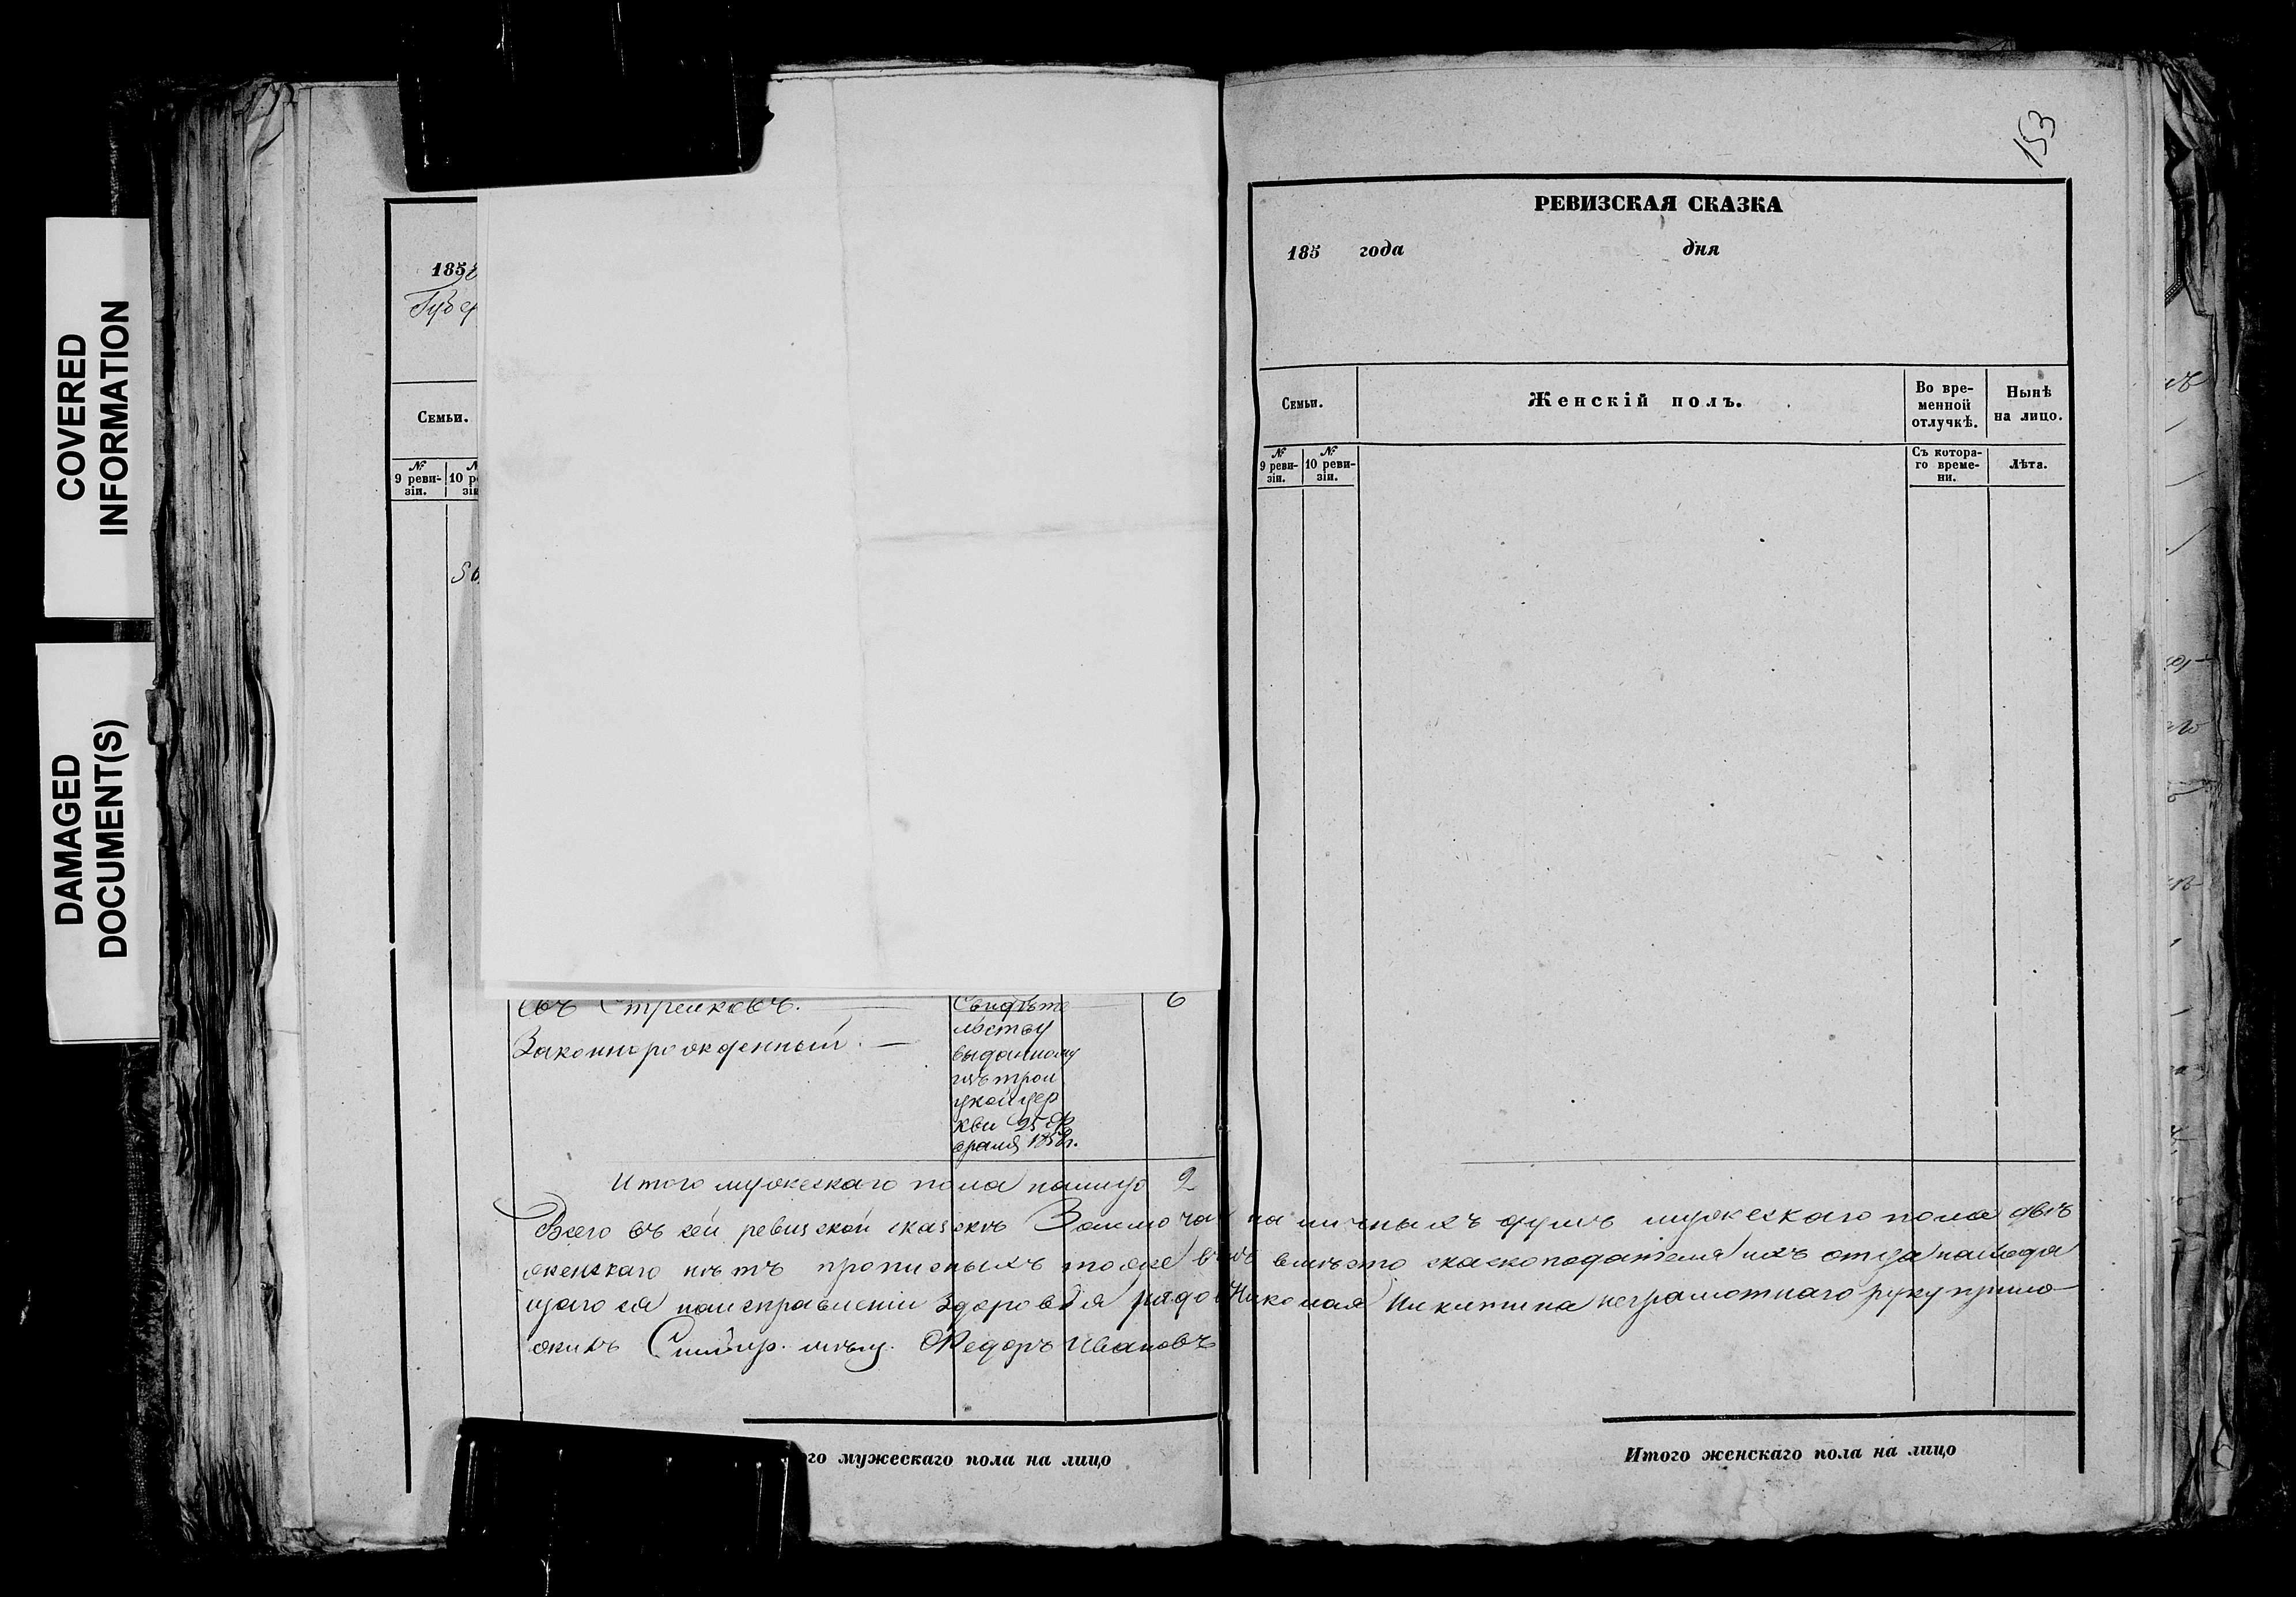 COVERED
INFORMATION
DAMAGED
DOCUMENT(S)
1858
Губер
Семьи.
№
9 реви-
зіи.
№
10 ре
зіи
въ Стрелковъ.
Законнорожденный. —
Свидѣте
льству
выданному
изъ трои
цкой цер
кви 25 фе
враля 1858 г.
6
Итого мужескаго пола налицо 2
Всего въ сей ревизской сказкѣ Заключа на личныхъ душъ мужескаго пола двѣ
женскаго нѣтъ прописныхъ тоже вмѣсто сказкоподателя ихъ отца находя
щагося на исправленіи здоровья рядов Николая Никитина неграмотнаго руку прило-
жилъ Симбир. мѣщ. Федоръ Ивановъ
го мужескаго пола на лицо
153
РЕВИЗСКАЯ СКАЗКА
185 года дня
Семьи.
Женскій полъ.
Во вре-
менной
отлучкѣ.
Нынѣ
на лицо.
№
9 реви-
зіи.
№
10 реви-
зіи.
Съ котора-
го време-
ни.
Лѣта.
Итого женскаго пола на лицо